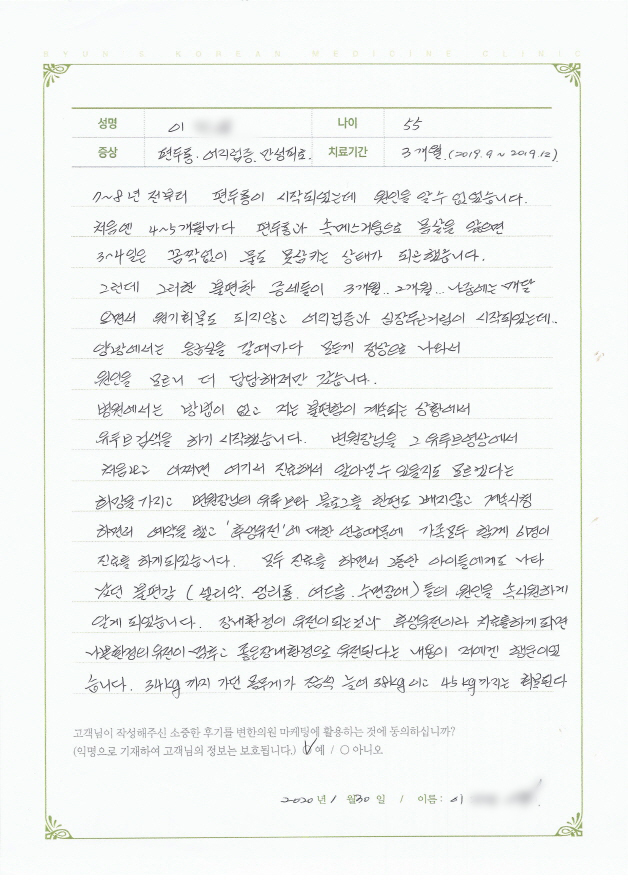 BYUN'S KOREAN MEDICINE CLINIC
성명 이 나이 55
증상 편두통. 어지럼증. 만성피로. 치료기간 3개월. (2019. 9 ~ 2019. 12)
7~8년 전부터 편두통이 시작되었는데 원인을 알 수 없었습니다.
처음엔 4~5개월마다 편두통과 속메스거움으로 몸살을 앓으면
3~4일은 꼼짝없이 물도 못삼키는 상태가 되곤했습니다.
그런데 그러한 불편한 증세들이 3개월.. 2개월... 나중에는 매달
오면서 원기회복도 되지않고 어지럼증과 심장두근거림이 시작되었는데..
양방에서는 응급실을 갈때마다 모든게 정상으로 나와서
원인을 모르니 더 답답해져만 갔습니다.
병원에서는 방법이 없고 저는 불편함이 계속되는 상황에서
유투브 검색을 하기 시작했습니다. 변원장님을 그 유투브영상에서
처음보고 어쩌면 여기서 진료해서 알아낼 수 있을지도 모르겠다는
희망을 가지고 변원장님의 유투브와 블로그를 한편도 빼지않고 계속시청
하면서 예약을 했고 '후성유전'에 대한 때문에 가족모두 함께 6명이
진료를 하게되었습니다. 모두 진료를 하면서 그동안 아이들에게도 나타
났던 불편감 ( 셀리악. 생리통. 여드름. 수면장애 ) 들의 원인을 속시원하게
알게 되었습니다. 장내환경이 유전이되는것과 후성유전이라 치료를하게되면
나쁜환경의유전이 멈추고 좋은장내환경으로 유전된다는 내용이 저에겐 행운이었
습니다. 34kg 까지 가던 몸무게가 조금씩 늘어 38kg 이고 45kg까지는 회복된다
고객님이 작성해주신 소중한 후기를 변한의원 마케팅에 활용하는 것에 동의하십니까?
(익명으로 기재하여 고객님의 정보는 보호됩니다.) ○ 예 / ○ 아니오
2020 년 1 월 30 일 / 이름 : 이